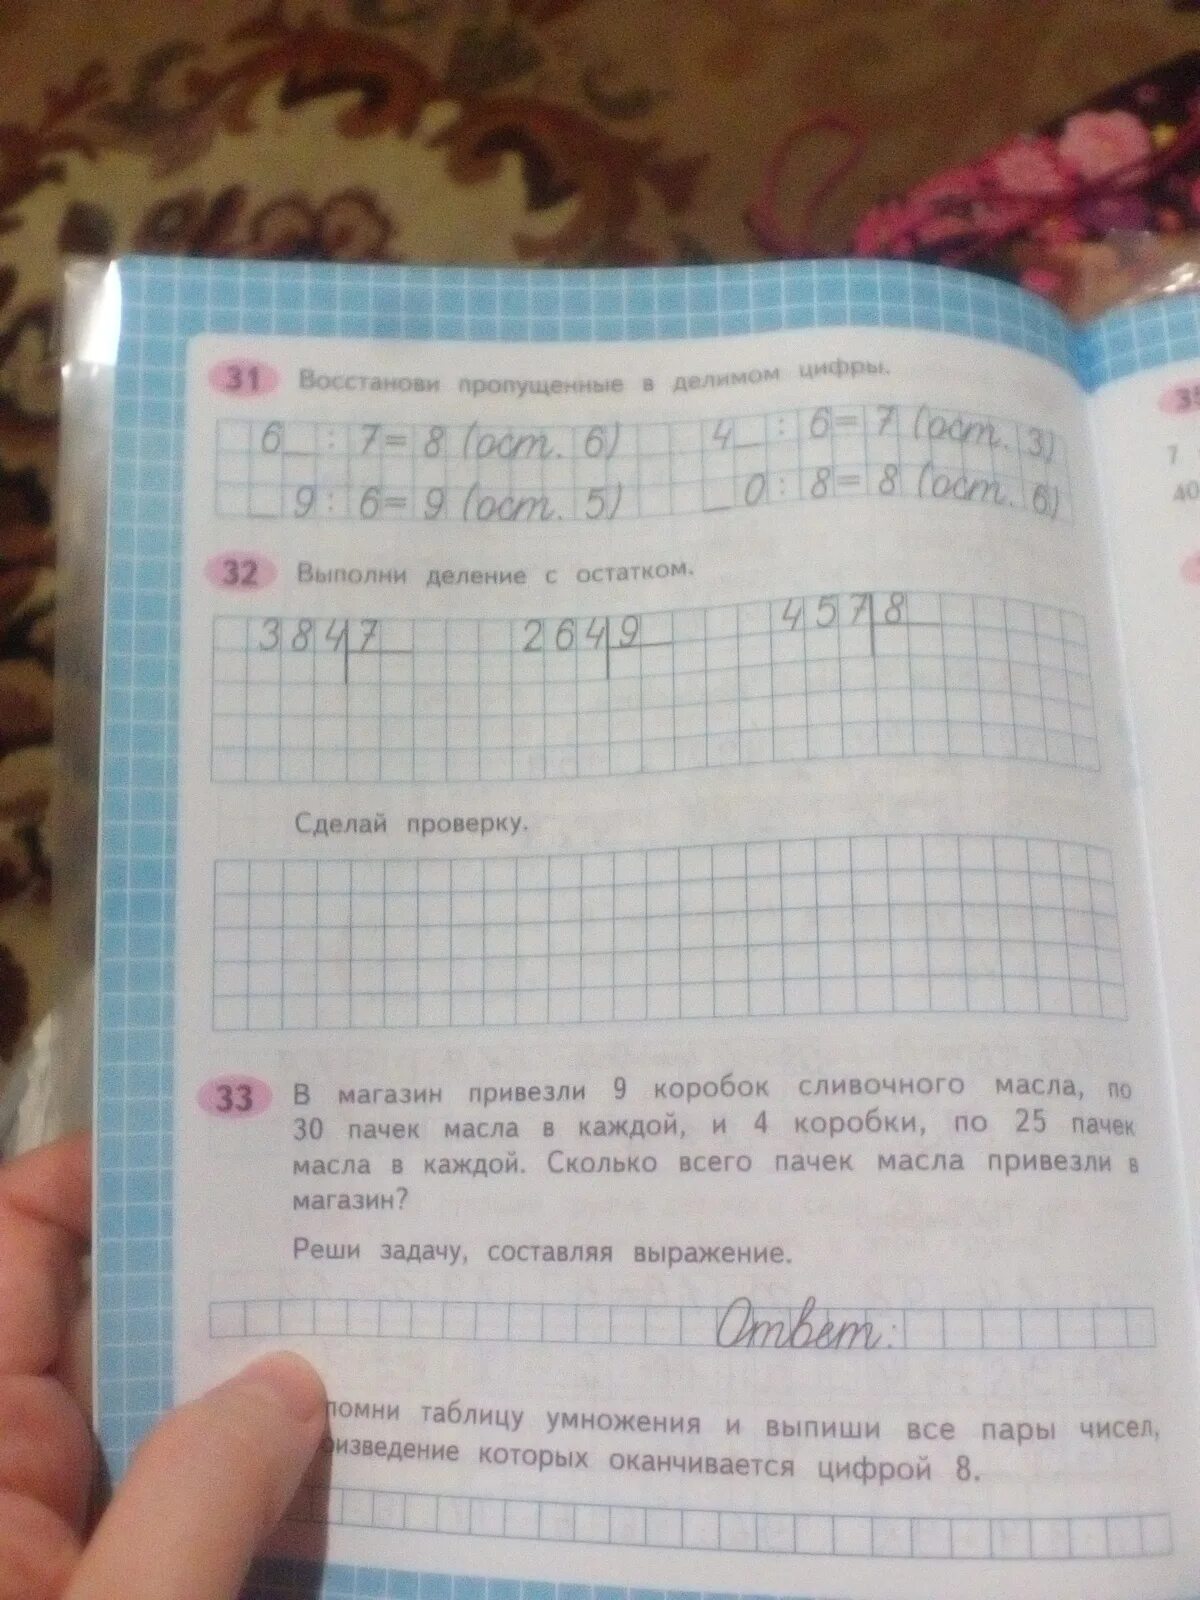 31 Восстанови пропущенные в делимом цифры.
6_ : 7 = 8 (ост. 6) 4_ : 6 = 7 (ост. 3)
_9 : 6 = 9 (ост. 5) _0 : 8 = 8 (ост. 6)
32 Выполни деление с остатком.
384 7 264 9 457 8
Сделай проверку.
33 В магазин привезли 9 коробок сливочного масла, по
30 пачек масла в каждой, и 4 коробки, по 25 пачек
масла в каждой. Сколько всего пачек масла привезли в
магазин?
Реши задачу, составляя выражение.
Ответ:
помни таблицу умножения и выпиши все пары чисел,
оизведение которых оканчивается цифрой 8.
35
7
до